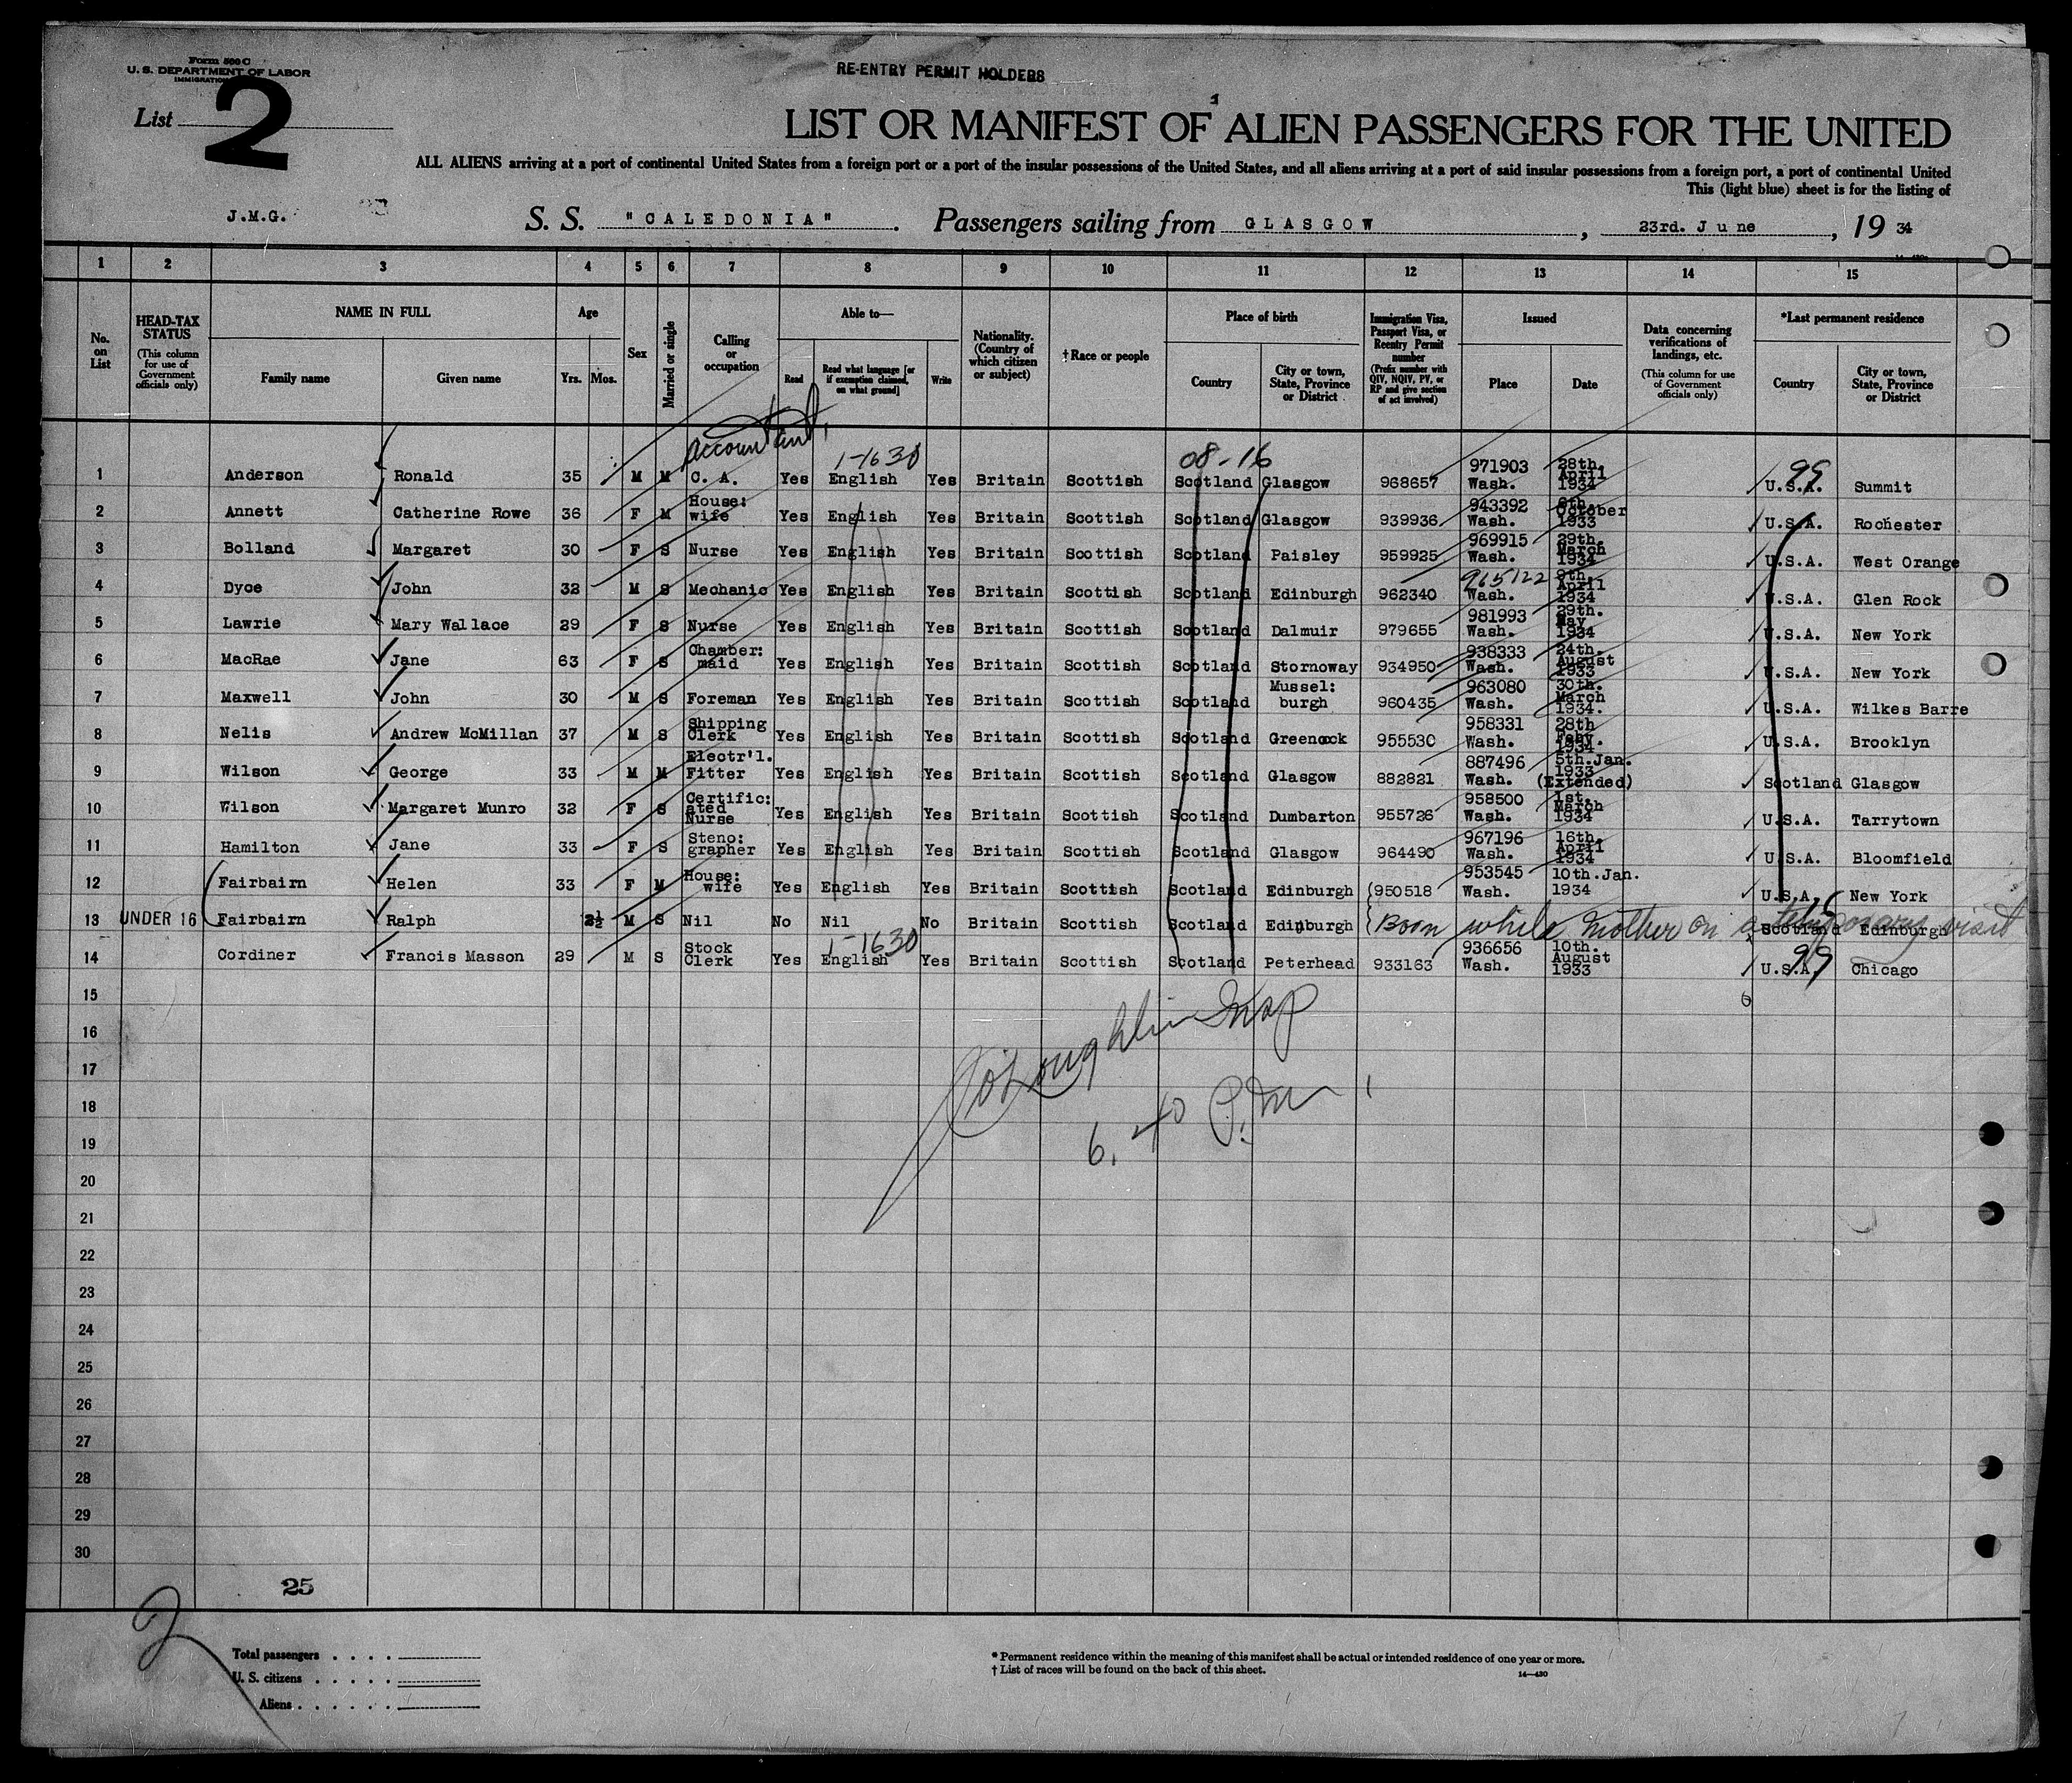 Form 500 C
U. S. DEPARTMENT OF LABOR
IMMIGRATION
RE-ENTRY PERMIT HOLDERS
List 2
1
LIST OR MANIFEST OF ALIEN PASSENGERS FOR THE UNITED
ALL ALIENS arriving at a port of continental United States from a foreign port or a port of the insular possessions of the United States, and all aliens arriving at a port of said insular possessions from a foreign port, a port of continental United
This (light blue) sheet is for the listing of
J.M.G. S. S. "CALEDONIA". Passengers sailing from GLASGOW, 23rd. June, 19 34
1 2 3 4 5 6 7 8 9 10 11 12 13 14 15
No. on List
HEAD-TAX STATUS (This column for use of Government officials only)
NAME IN FULL Family name Given name
Age Yrs. Mos.
Sex
Married or single
Calling or occupation
Able to— Read Read what language [or if exemption claimed, on what ground] Write
Nationality. (Country of which citizen or subject)
†Race or people
Place of birth Country City or town, State, Province or District
Immigration Visa, Passport Visa, or Reentry Permit number (Prefix number with QIV, NQIV, PV, or RP and give section of act involved)
Issued Place Date
Data concerning verifications of landings, etc. (This column for use of Government officials only)
*Last permanent residence Country City or town, State, Province or District
Accountant,
1-1630 08-16 99
1 Anderson Ronald 35 M M C. A. Yes English Yes Britain Scottish Scotland Glasgow 968657 971903 Wash. 28th. April 1934 U.S.A. Summit
2 Annett Catherine Rowe 36 F M House: wife Yes English Yes Britain Scottish Scotland Glasgow 939936 943392 Wash. 6th. October 1933 U.S.A. Rochester
3 Bolland Margaret 30 F S Nurse Yes English Yes Britain Scottish Scotland Paisley 959925 969915 Wash. 29th. March 1934 U.S.A. West Orange
4 Dyce John 32 M S Mechanic Yes English Yes Britain Scottish Scotland Edinburgh 962340 965122 Wash. 9th. April 1934 U.S.A. Glen Rock
5 Lawrie Mary Wallace 29 F S Nurse Yes English Yes Britain Scottish Scotland Dalmuir 979655 981993 Wash. 29th. May 1934 U.S.A. New York
6 MacRae Jane 63 F S Chamber: maid Yes English Yes Britain Scottish Scotland Stornoway 934950 938333 Wash. 24th. August 1933 U.S.A. New York
7 Maxwell John 30 M S Foreman Yes English Yes Britain Scottish Scotland Mussel: burgh 960435 963080 Wash. 30th. March 1934. U.S.A. Wilkes Barre
8 Nelis Andrew McMillan 37 M S Shipping Clerk Yes English Yes Britain Scottish Scotland Greenock 955530 958331 Wash. 28th Feby. 1934 U.S.A. Brooklyn
9 Wilson George 33 M M Electr'l. Fitter Yes English Yes Britain Scottish Scotland Glasgow 882821 887496 Wash. 5th.Jan. 1933 (Extended) Scotland Glasgow
10 Wilson Margaret Munro 32 F S Certific: ated Nurse Yes English Yes Britain Scottish Scotland Dumbarton 955726 958500 Wash. 1st. March 1934 U.S.A. Tarrytown
11 Hamilton Jane 33 F S Steno: grapher Yes English Yes Britain Scottish Scotland Glasgow 964490 967196 Wash. 16th. April 1934 U.S.A. Bloomfield
12 Fairbairn Helen 33 F M House: wife Yes English Yes Britain Scottish Scotland Edinburgh (950518 953545 Wash. 10th.Jan. 1934 U.S.A. New York
13 UNDER 16 Fairbairn Ralph 2½ M S Nil No Nil No Britain Scottish Scotland Edinburgh Born while mother on a temporary visit Scotland Edinburgh
1-1630 99
14 Cordiner Francis Masson 29 M S Stock Clerk Yes English Yes Britain Scottish Scotland Peterhead 933163 936656 Wash. 10th. August 1933 U.S.A. Chicago
15
16
17
18
19
20
21
22
23
24
25
26
27
28
29
30
O'Loughlin Insp
6.40 P.m
25
2
Total passengers
U. S. citizens
Aliens
* Permanent residence within the meaning of this manifest shall be actual or intended residence of one year or more.
† List of races will be found on the back of this sheet.
14—430